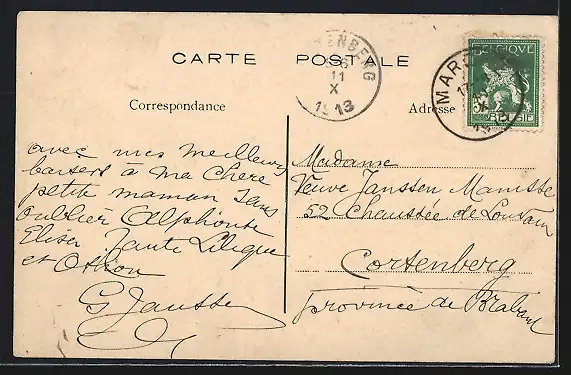 CARTE POSTALE
ENBERG
11
X
1913
BELGIQUE
BELGIE
MAR
11
X
Correspondance
Adresse
avec mes meilleurs
baisers à ma chère
petite maman sans
oublier Alphonse
Elisa Tante
et
G Janssen
Madame
Veuve Janssen
52 Chaussée de Louvain
Cortenberg
Province de Brabant